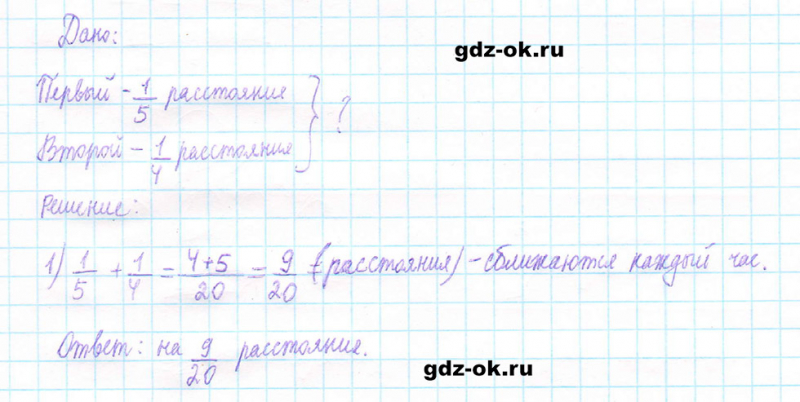 Дано:
gdz-ok.ru
Первый - 1/5 расстояния
Второй - 1/4 расстояния } ?
Решение:
1) 1/5 + 1/4 = 4+5/20 = 9/20 (расстояния) - сближаются каждый час.
Ответ: на 9/20 расстояния.
gdz-ok.ru